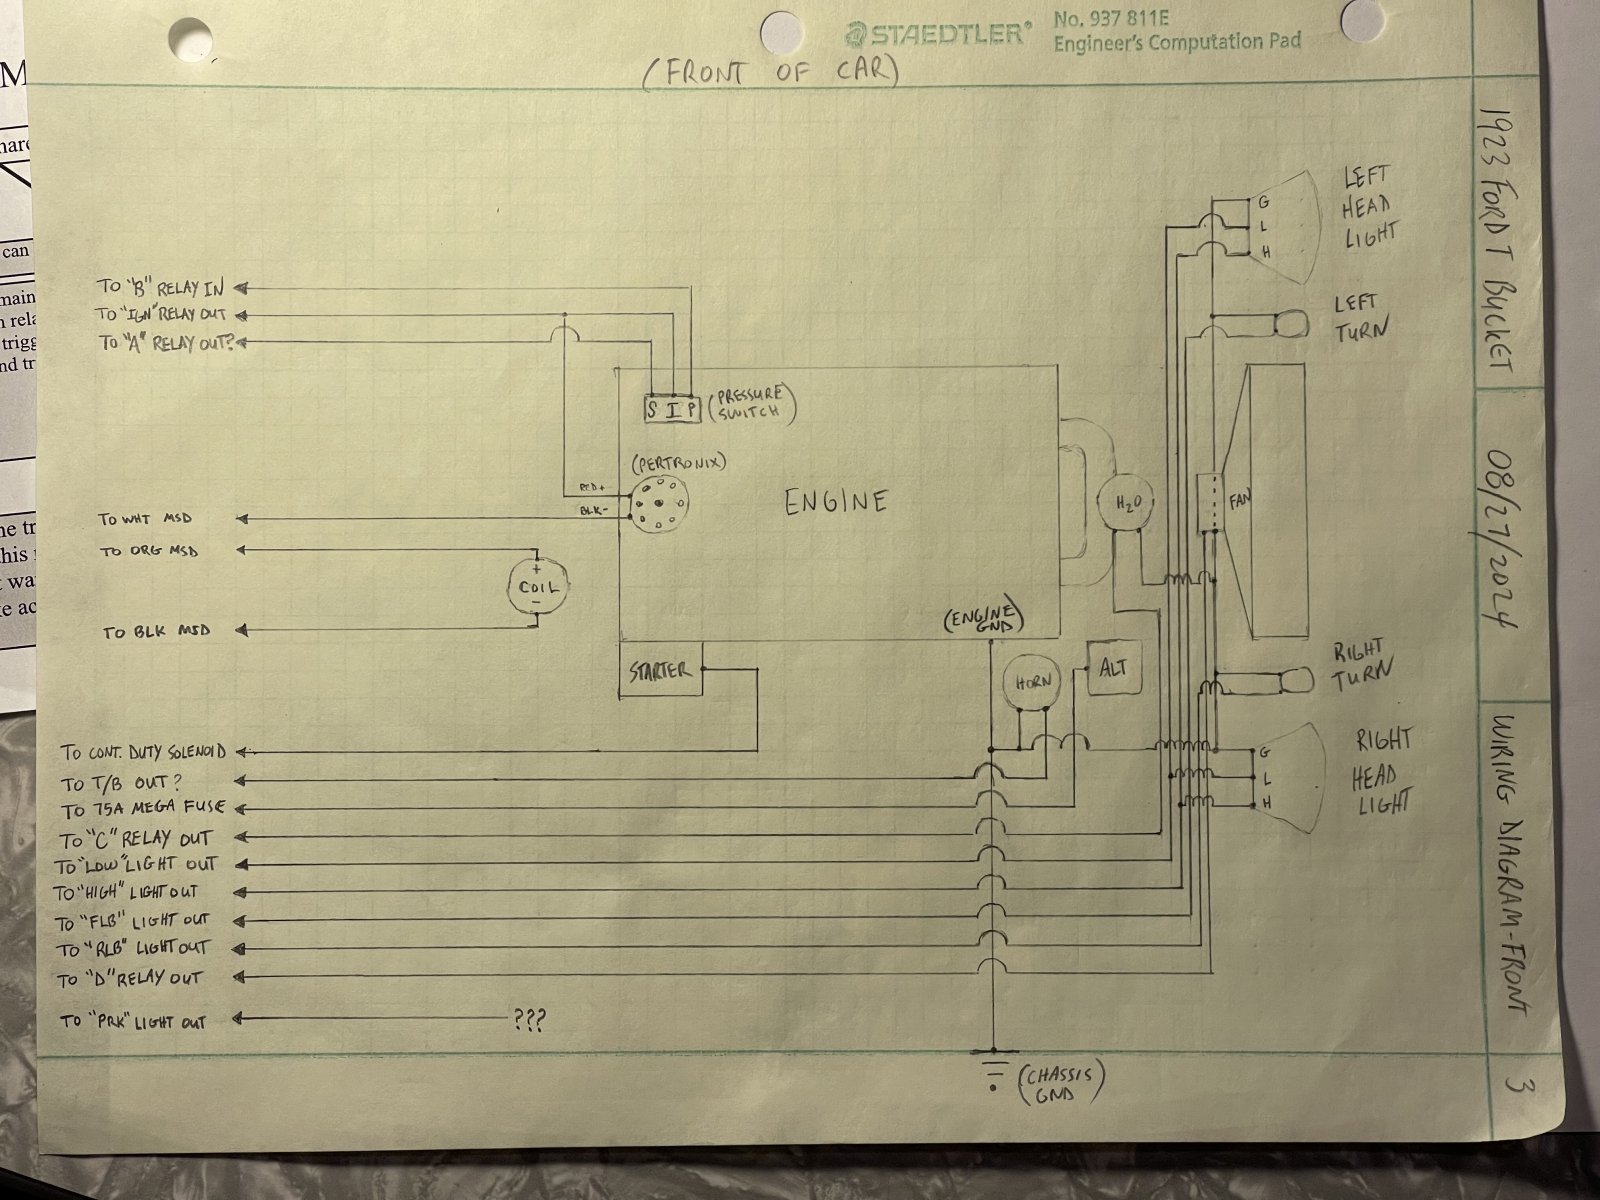 STAEDTLER® No. 937 811E
Engineer's Computation Pad
(FRONT OF CAR)
1923 FORD T BUCKET
08/27/2024
WIRING DIAGRAM-FRONT
3
LEFT
HEAD
LIGHT
G
L
H
LEFT
TURN
TO "B" RELAY IN
TO "IGN" RELAY OUT
TO "A" RELAY OUT?
S I P
(PRESSURE
SWITCH)
(PERTRONIX)
RED+
BLK-
ENGINE
H2O
FAN
TO WHT MSD
TO ORG MSD
+
COIL
-
TO BLK MSD
(ENGINE
GND)
STARTER
HORN
ALT
RIGHT
TURN
RIGHT
HEAD
LIGHT
G
L
H
TO CONT. DUTY SOLENOID
TO T/B OUT?
TO 75A MEGA FUSE
TO "C" RELAY OUT
TO "LOW" LIGHT OUT
TO "HIGH" LIGHT OUT
TO "FLB" LIGHT OUT
TO "RLB" LIGHT OUT
TO "D" RELAY OUT
TO "PRK" LIGHT OUT
???
(CHASSIS
GND)
M
can
main